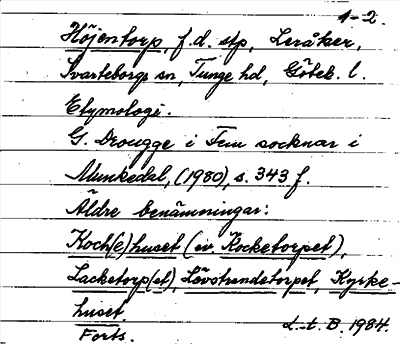 1-2.
Höjentorp, f.d. stp, Leråker,
Svarteborgs sn, Tunge hd, Göteb. l.
Etymologi.
G. Drougge i Fem socknar i
Munkedal, (1980), s. 343 f.
Äldre benämningar:
Koch(e)huset (ev. Kocketorpet),
Lacketorp(et), Lövstrandetorpet, Kyrke-
huset.
Forts. L-t. B. 1984.